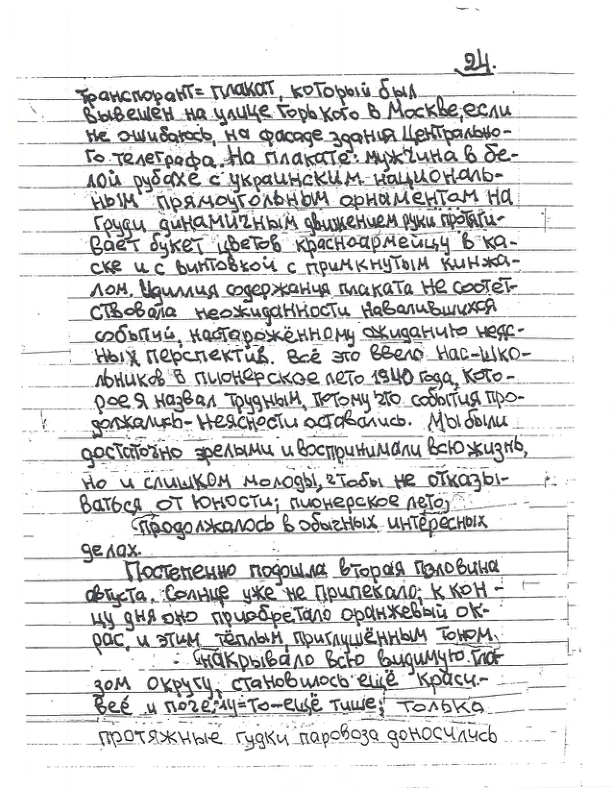 24.
транспорант= плакат, который был
вывешен на улице Горького в Москве, если
не ошибаюсь, на фасаде здания Центрально-
го телеграфа. На плакате: мужчина в бе-
лой рубахе с украинским националь-
ным прямоугольным орнаментам на
груди динамичным движением руки протяги-
вает букет цветов красноармейцу в ка-
ске и с винтовкой с примкнутым кинжа-
лом. Идиллия содержания плаката не соотет-
ствовала неожиданности навалившихся
событий, насторожённому ожиданию неяс-
ных перспектив. Всё это ввело нас-шко-
льников в пионерское лето 1940 года, кото-
рое я назвал трудным, потому что события про-
должались- неясности оставались. Мы были
достаточно зрелыми и воспринимали всю жизнь,
но и слишком молоды, чтобы не отказы-
ваться от юности; пионерское лето,
продолжалось в обычных интересных
делах.
Постепенно подошла вторая половина
августа. Солнце уже не припекало; к кон-
цу дня оно приобретало оранжевый ок-
рас, и этим тёплым приглушённым тоном,
накрывало всю видимую глa-
зом округу, становилось ещё краси-
веё и почему=то-ещё тише; только
протяжные гудки паровоза доносились